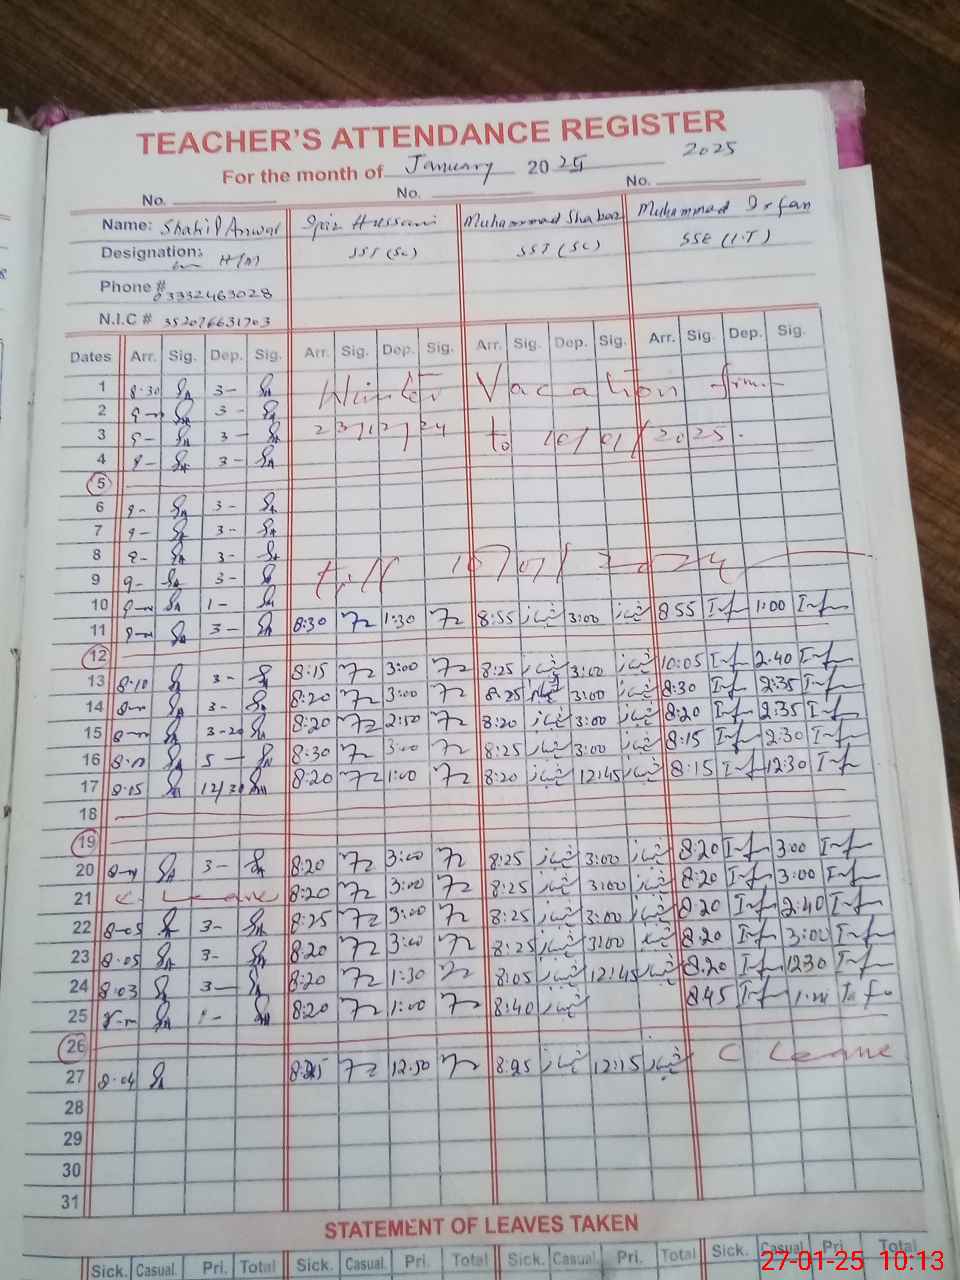 TEACHER'S ATTENDANCE REGISTER
For the month of January 2025 2025
No. No. No.
Name: Shahid Anwar Hussain Muhammad Shabaz Muhammad Irfan
Designation: H/M SST (Sc) SST (Sc) SSE (I.T)
Phone # 03332463028
N.I.C # 352076631703
Dates Arr. Sig. Dep. Sig. Arr. Sig. Dep. Sig. Arr. Sig. Dep. Sig. Arr. Sig. Dep. Sig.
1 8-30 3- Winter Vacation from
2 9- 3-
3 9- 3- 23/12/24 to 10/01/2025.
4 9- 3-
5
6 9- 3-
7 9- 3-
8 9- 3-
9 9- 3- till
10 1-
11 3- 8:30 1:30 8:55 شہباز 3:00 شہباز 8 55 Irf 1:00 Irf
12
13 8-10 3- 8:15 3:00 8:25 شہباز 3:00 شہباز 10:05 Irf 2:40 Irf
14 3- 8:20 3:00 8:25 شہباز 3:00 شہباز 8:30 Irf 2:35 Irf
15 3-20 8:20 2:50 8:20 شہباز 3:00 شہباز 8:20 Irf 2:35 Irf
16 5- 8:30 3:00 8:25 شہباز 3:00 شہباز 8:15 Irf 2:30 Irf
17 8:15 12/30 8:20 1:00 8:20 شہباز 12:45 شہباز 8:15 Irf 12:30 Irf
18
19
20 3- 8:20 3:00 8:25 شہباز 3:00 شہباز 8:20 Irf 3:00 Irf
21 C. Leave 8:20 3:00 8:25 شہباز 3:00 شہباز 8:20 Irf 3:00 Irf
22 8-05 3- 8:25 3:00 8:25 شہباز 3:00 شہباز 8:20 Irf 2:40 Irf
23 8.05 3- 8:20 3:00 8:25 شہباز 3:00 شہباز 8:20 Irf 3:00 Irf
24 8:03 3- 8:20 1:30 8:05 شہباز 12:45 شہباز 8:20 Irf 1230 Irf
25 1- 8:20 1:00 8:40 شہباز 845 Irf
26
27 8.04 8:25 12:50 8:25 شہباز 12:15 شہباز C Leave
28
29
30
31
STATEMENT OF LEAVES TAKEN
Sick. Casual. Pri. Total Sick. Casual. Pri. Total Sick. Casual. Pri. Total Sick. Casual. Pri. Total
27-01-25 10:13